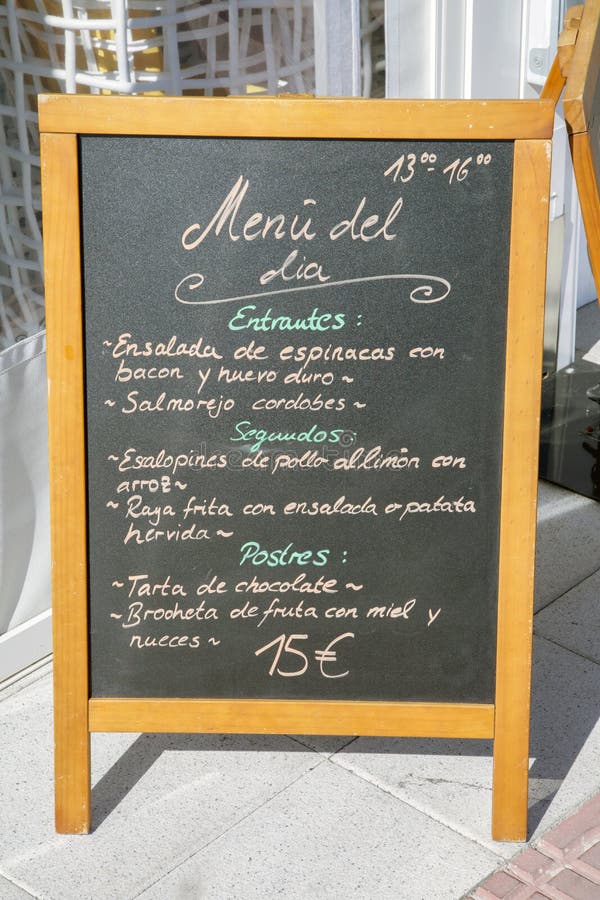 13⁰⁰-16⁰⁰
Menú del
dia
Entrantes:
~Ensalada de espinacas con
bacon y huevo duro~
~Salmorejo cordobes~
Segundos:
~Esalopines de pollo al limón con
arroz~
~Raya frita con ensalada o patata
hervida~
Postres:
~Tarta de chocolate~
~Brocheta de fruta con miel y
nueces~
15€